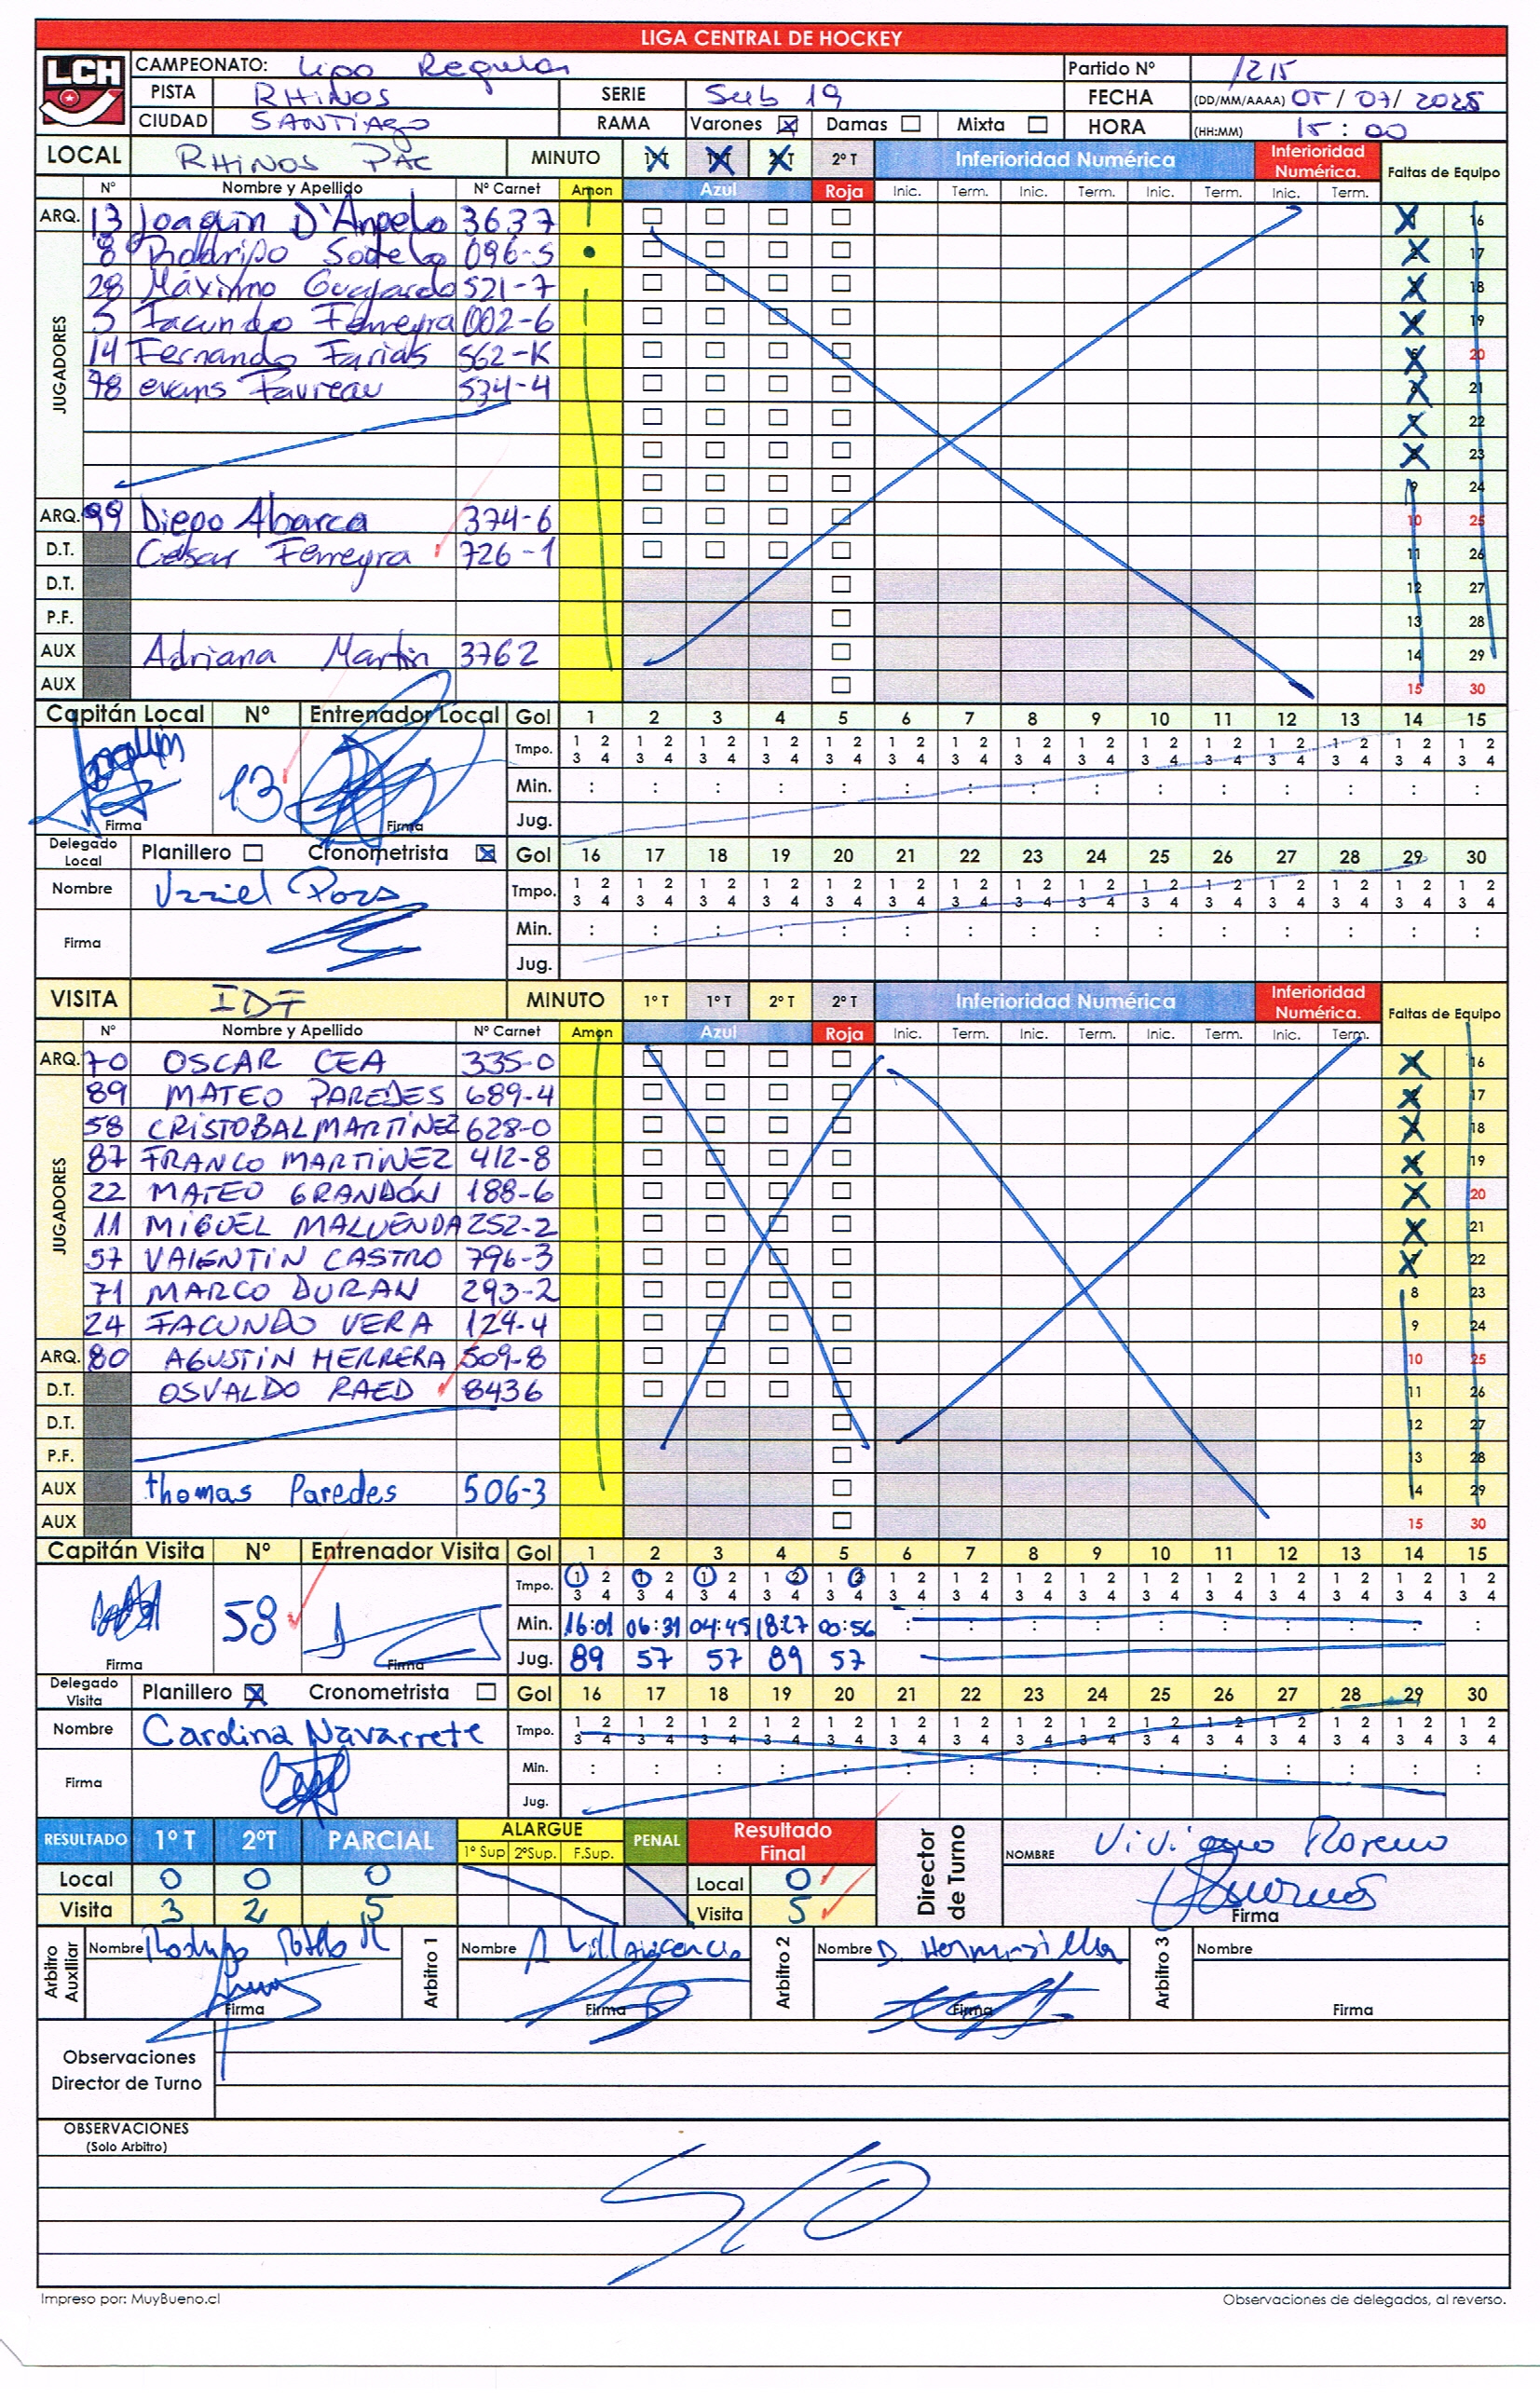 LIGA CENTRAL DE HOCKEY
LCH
CAMPEONATO: Liga Regular Partido Nº 1215
PISTA RHINOS SERIE Sub 19 FECHA (DD/MM/AAAA) 05 / 07 / 2025
CIUDAD SANTIAGO RAMA Varones ☒ Damas ☐ Mixta ☐ HORA (HH:MM) 15 : 00
LOCAL RHINOS PAC MINUTO 1º T 1º T 2º T 2º T Inferioridad Numérica Inferioridad Numérica. Faltas de Equipo
Nº Nombre y Apellido Nº Carnet Amon Azul Roja Inic. Term. Inic. Term. Inic. Term. Inic. Term.
ARQ. 13 Joaquin D'Angelo 3637 1 16
JUGADORES
8 Rodrigo Sotelo 096-5 2 17
28 Máximo Guajardo 521-7 3 18
5 Facundo Ferreyra 002-6 4 19
14 Fernando Farias 562-K 5 20
78 evans Favreau 534-4 6 21
7 22
8 23
9 24
ARQ. 99 Diego Abarca 374-6 10 25
D.T. César Ferreyra 726-1 11 26
D.T. 12 27
P.F. 13 28
AUX Adriana Martin 3762 14 29
AUX 15 30
Capitán Local Nº Entrenador Local Gol 1 2 3 4 5 6 7 8 9 10 11 12 13 14 15
Tmpo. 1 2 3 4 1 2 3 4 1 2 3 4 1 2 3 4 1 2 3 4 1 2 3 4 1 2 3 4 1 2 3 4 1 2 3 4 1 2 3 4 1 2 3 4 1 2 3 4 1 2 3 4 1 2 3 4 1 2 3 4
Joaquin 13 Min. : : : : : : : : : : : : : : :
Firma Firma Jug.
Delegado Local Planillero ☐ Cronometrista ☒ Gol 16 17 18 19 20 21 22 23 24 25 26 27 28 29 30
Nombre Tmpo. 1 2 3 4 1 2 3 4 1 2 3 4 1 2 3 4 1 2 3 4 1 2 3 4 1 2 3 4 1 2 3 4 1 2 3 4 1 2 3 4 1 2 3 4 1 2 3 4 1 2 3 4 1 2 3 4 1 2 3 4
Firma Min. : : : : : : : : : : : : : : :
Jug.
VISITA IDF MINUTO 1º T 1º T 2º T 2º T Inferioridad Numérica Inferioridad Numérica. Faltas de Equipo
Nº Nombre y Apellido Nº Carnet Amon Azul Roja Inic. Term. Inic. Term. Inic. Term. Inic. Term.
ARQ. 70 OSCAR CEA 335-0 1 16
JUGADORES
89 MATEO PAREDES 689-4 2 17
58 CRISTOBAL MARTÍNEZ 628-0 3 18
87 FRANCO MARTINEZ 412-8 4 19
22 MATEO GRANDÓN 188-6 5 20
11 MIGUEL MALUENDA 252-2 6 21
57 VALENTIN CASTRO 796-3 7 22
71 MARCO DURAN 293-2 8 23
24 FACUNDO VERA 124-4 9 24
ARQ. 80 AGUSTIN HERRERA 509-8 10 25
D.T. OSVALDO RAED 8436 11 26
D.T. 12 27
P.F. 13 28
AUX thomas Paredes 506-3 14 29
AUX 15 30
Capitán Visita Nº Entrenador Visita Gol 1 2 3 4 5 6 7 8 9 10 11 12 13 14 15
Tmpo. 1 2 3 4 1 2 3 4 1 2 3 4 1 2 3 4 1 2 3 4 1 2 3 4 1 2 3 4 1 2 3 4 1 2 3 4 1 2 3 4 1 2 3 4 1 2 3 4 1 2 3 4 1 2 3 4 1 2 3 4
58 Min. 16:01 06:31 04:45 18:27 00:56 : : : : : : : : : :
Firma Firma Jug. 89 57 57 89 57
Delegado Visita Planillero ☒ Cronometrista ☐ Gol 16 17 18 19 20 21 22 23 24 25 26 27 28 29 30
Nombre Carolina Navarrete Tmpo. 1 2 3 4 1 2 3 4 1 2 3 4 1 2 3 4 1 2 3 4 1 2 3 4 1 2 3 4 1 2 3 4 1 2 3 4 1 2 3 4 1 2 3 4 1 2 3 4 1 2 3 4 1 2 3 4 1 2 3 4
Firma Min. : : : : : : : : : : : : : : :
Jug.
RESULTADO 1º T 2ºT PARCIAL ALARGUE 1º Sup 2ºSup. F.Sup. PENAL Resultado Final Director de Turno NOMBRE
Local 0 0 0 Local 0
Visita 3 2 5 Visita 5 Firma
Arbitro Auxiliar Nombre Firma Arbitro 1 Nombre Firma Arbitro 2 Nombre D. Hermosilla Firma Arbitro 3 Nombre Firma
Observaciones
Director de Turno
OBSERVACIONES
(Solo Arbitro)
S/O
Impreso por: MuyBueno.cl Observaciones de delegados, al reverso.